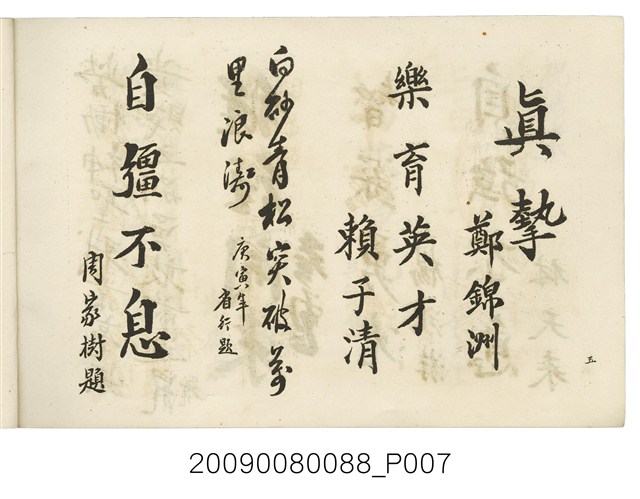 眞摯
鄭錦洲
樂育英才
賴子清
白砂青松突破萬
里浪濤
庚寅年
省行題
自彊不息
周家樹題
五
20090080088_P007